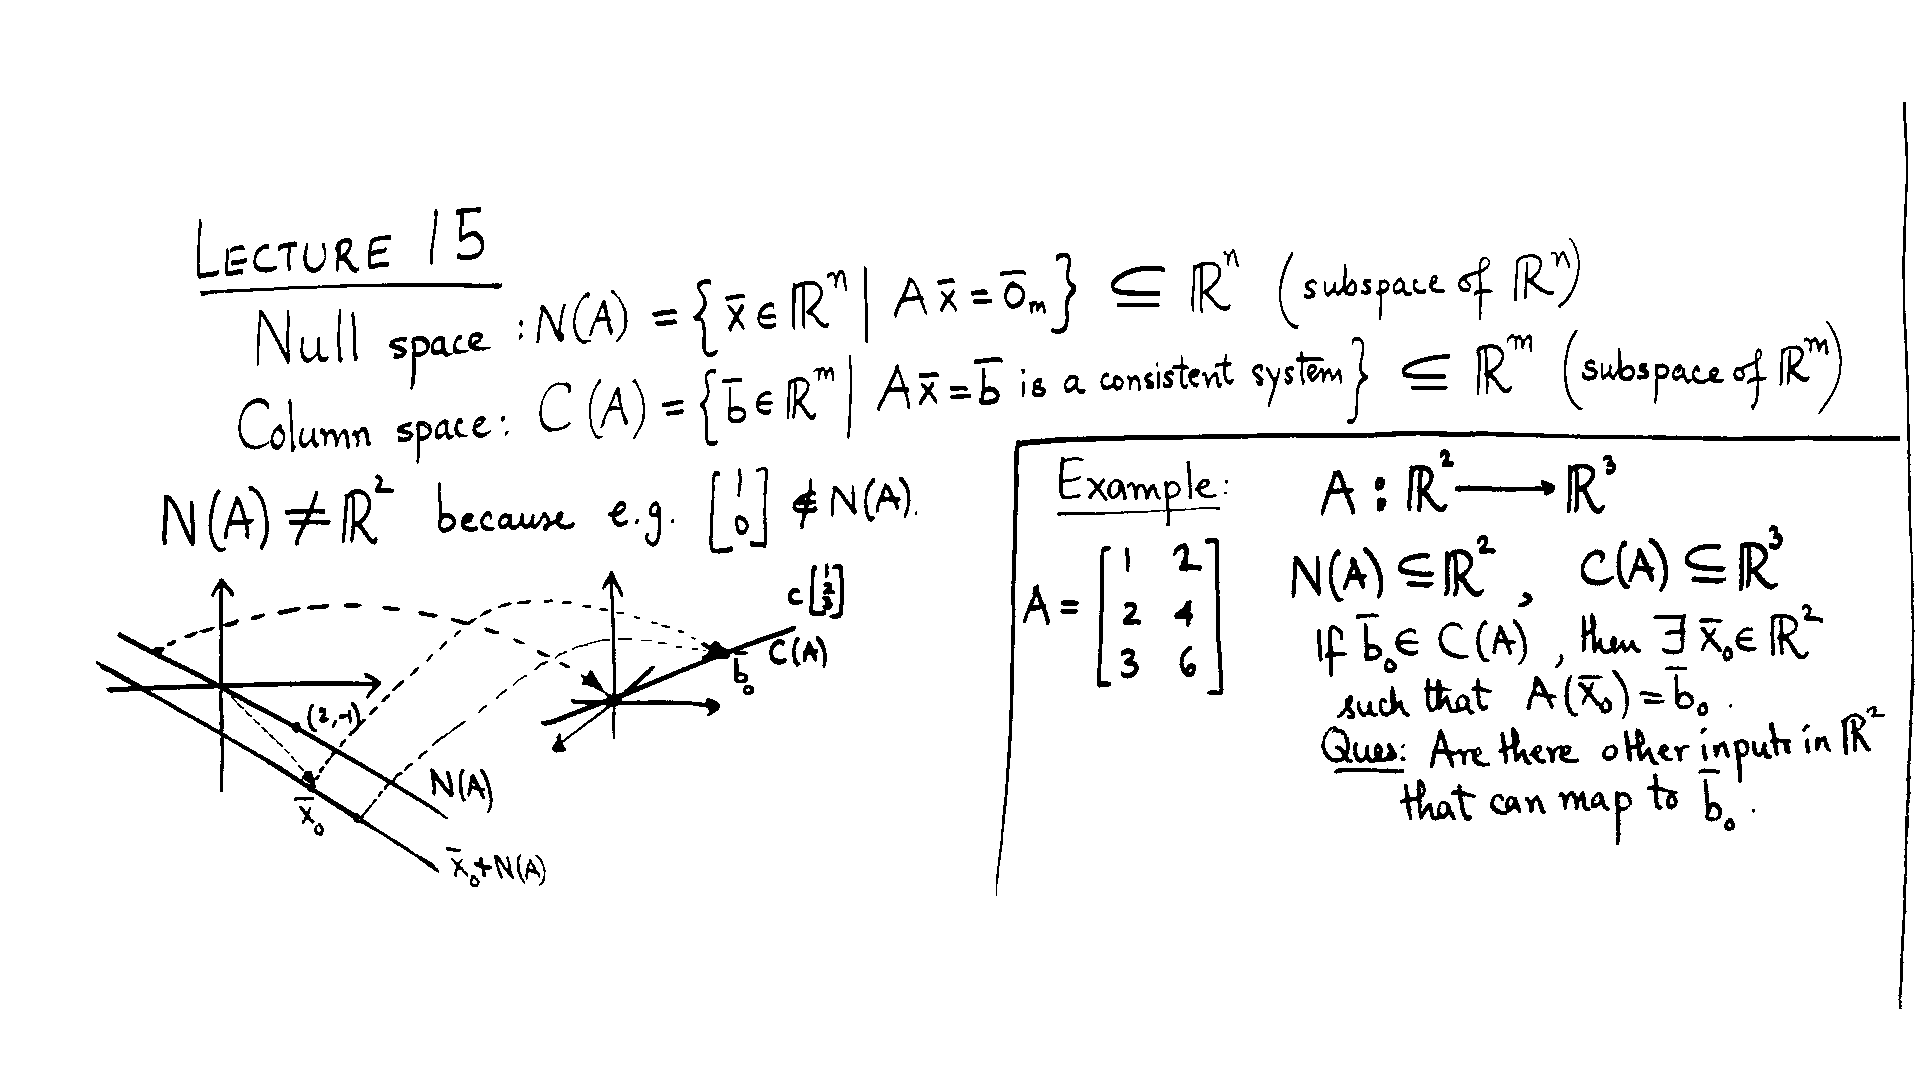 LECTURE 15
Null space : N(A) = { x̄ ∈ ℝⁿ | A x̄ = 0̄ₘ } ⊆ ℝⁿ (subspace of ℝⁿ)
Column space: C(A) = { b̄ ∈ ℝᵐ | A x̄ = b̄ is a consistent system } ⊆ ℝᵐ (subspace of ℝᵐ)
N(A) ≠ ℝ² because e.g. [1 0] ∉ N(A).
c[1 2 3]
C(A)
b̄₀
(2,-1)
N(A)
x̄₀
x̄₀+N(A)
Example: A : ℝ² → ℝ³
A = [1 2
2 4
3 6]
N(A) ⊆ ℝ² , C(A) ⊆ ℝ³
If b̄₀ ∈ C(A) , then ∃ x̄₀ ∈ ℝ²
such that A(x̄₀) = b̄₀ .
Ques: Are there other inputs in ℝ²
that can map to b̄₀ .